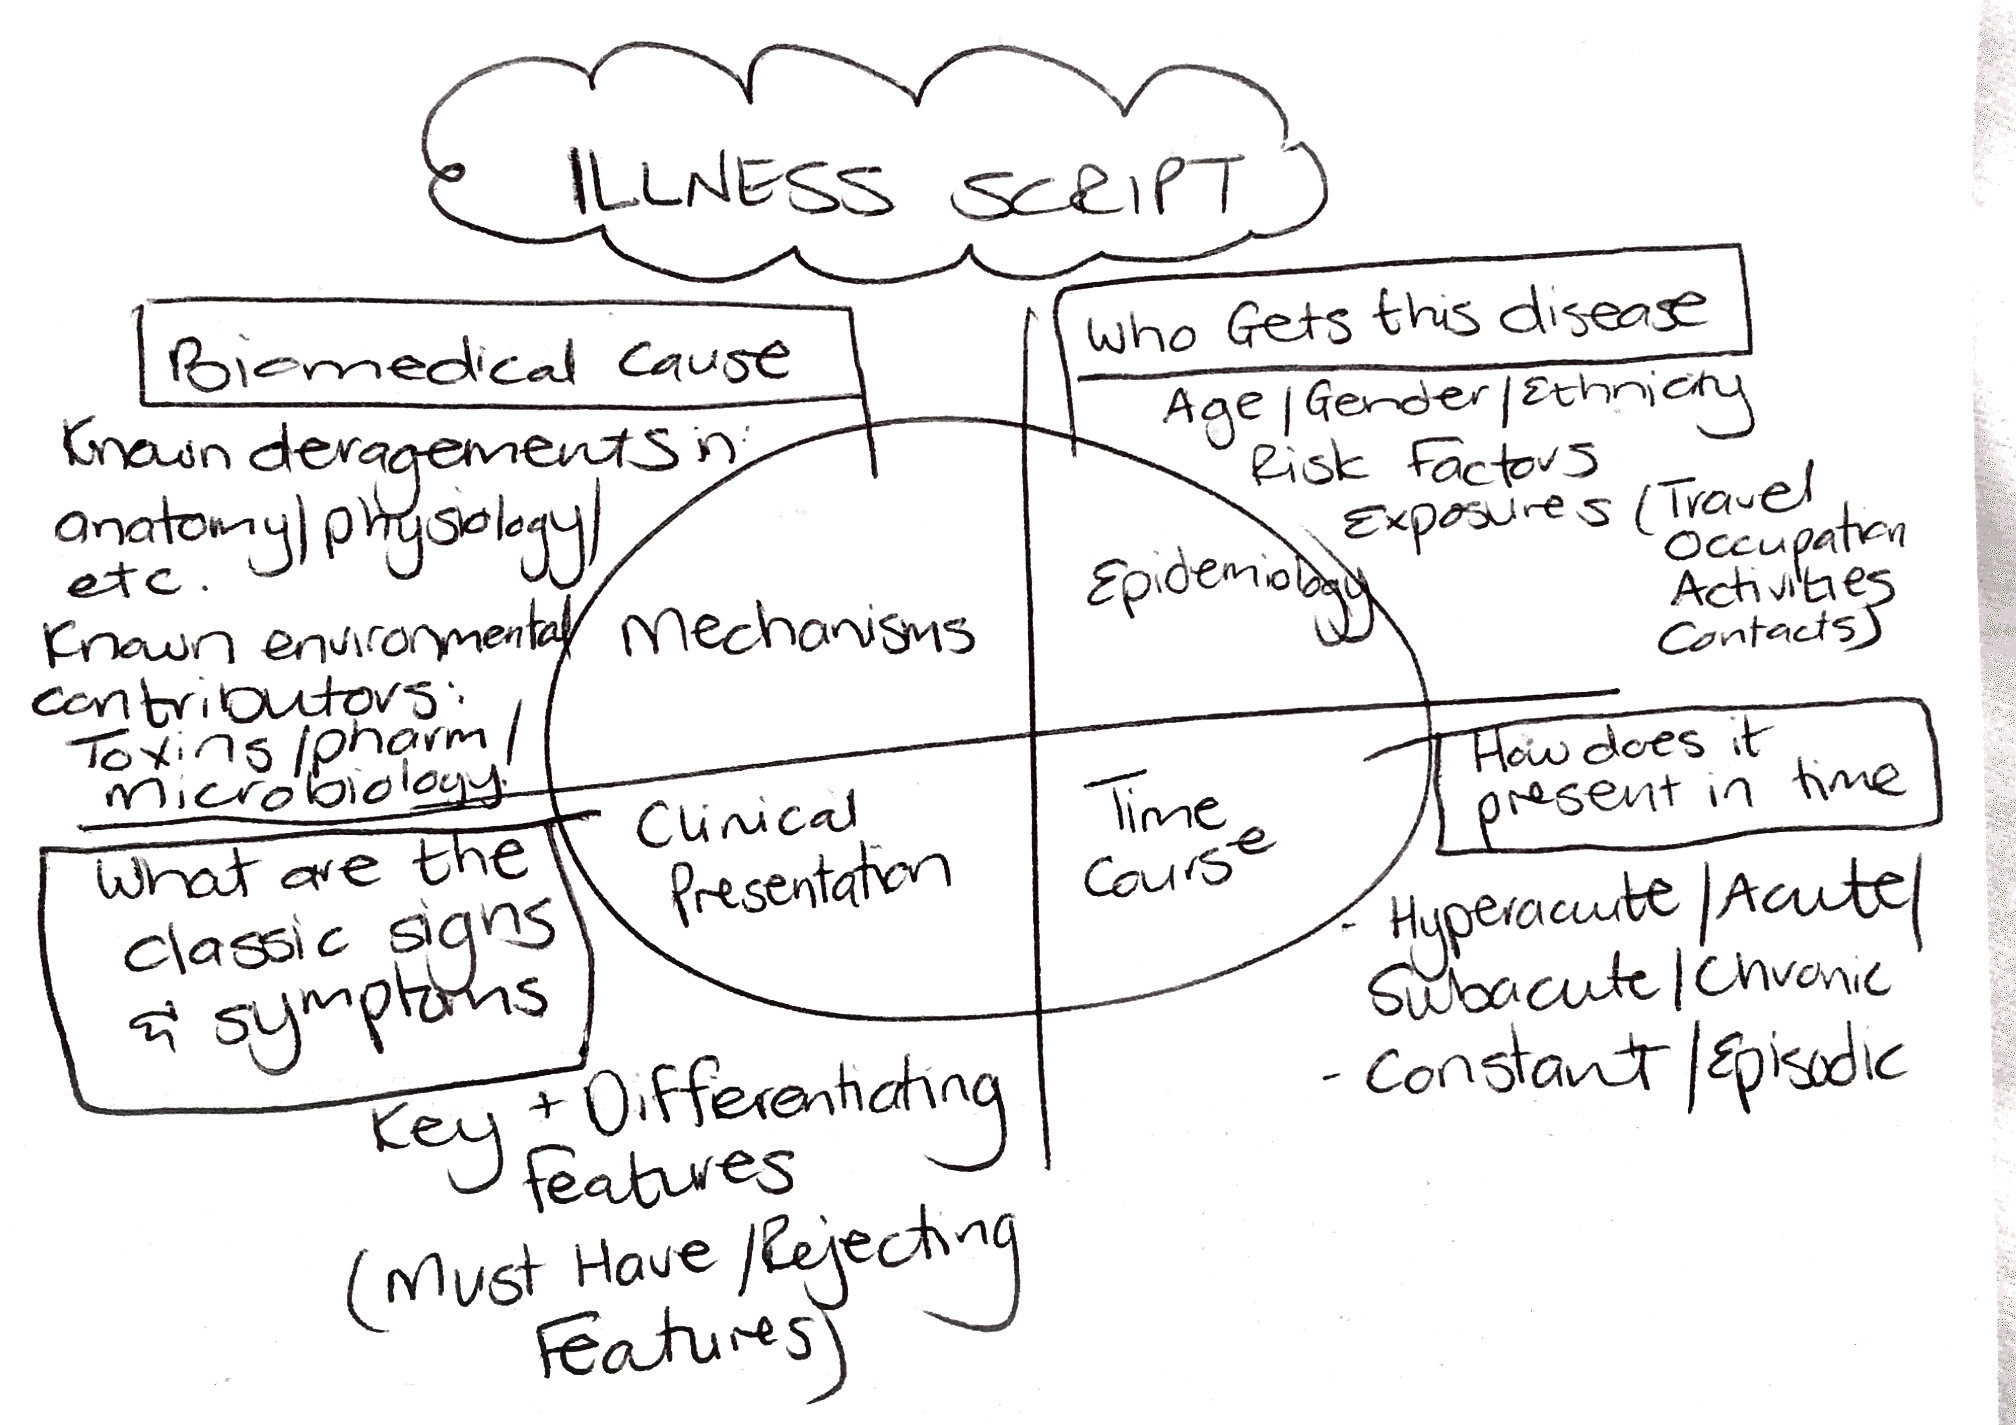 ILLNESS SCRIPT
Biomedical cause
Known deragements in:
anatomy/physiology/
etc.
Known environmental
contributors:
Toxins/pharm/
Microbiology.
Mechanisms
Who Gets this disease
Age/Gender/Ethnicity
Risk Factors
Exposures (Travel
Occupation
Activities
Contacts)
Epidemiology
What are the
classic signs
& symptoms
Clinical
Presentation
Key + Differentiating
Features
(Must Have/Rejecting
Features)
Time
Course
How does it
present in time
- Hyperacute/Acute/
Subacute/Chronic
- Constant/Episodic